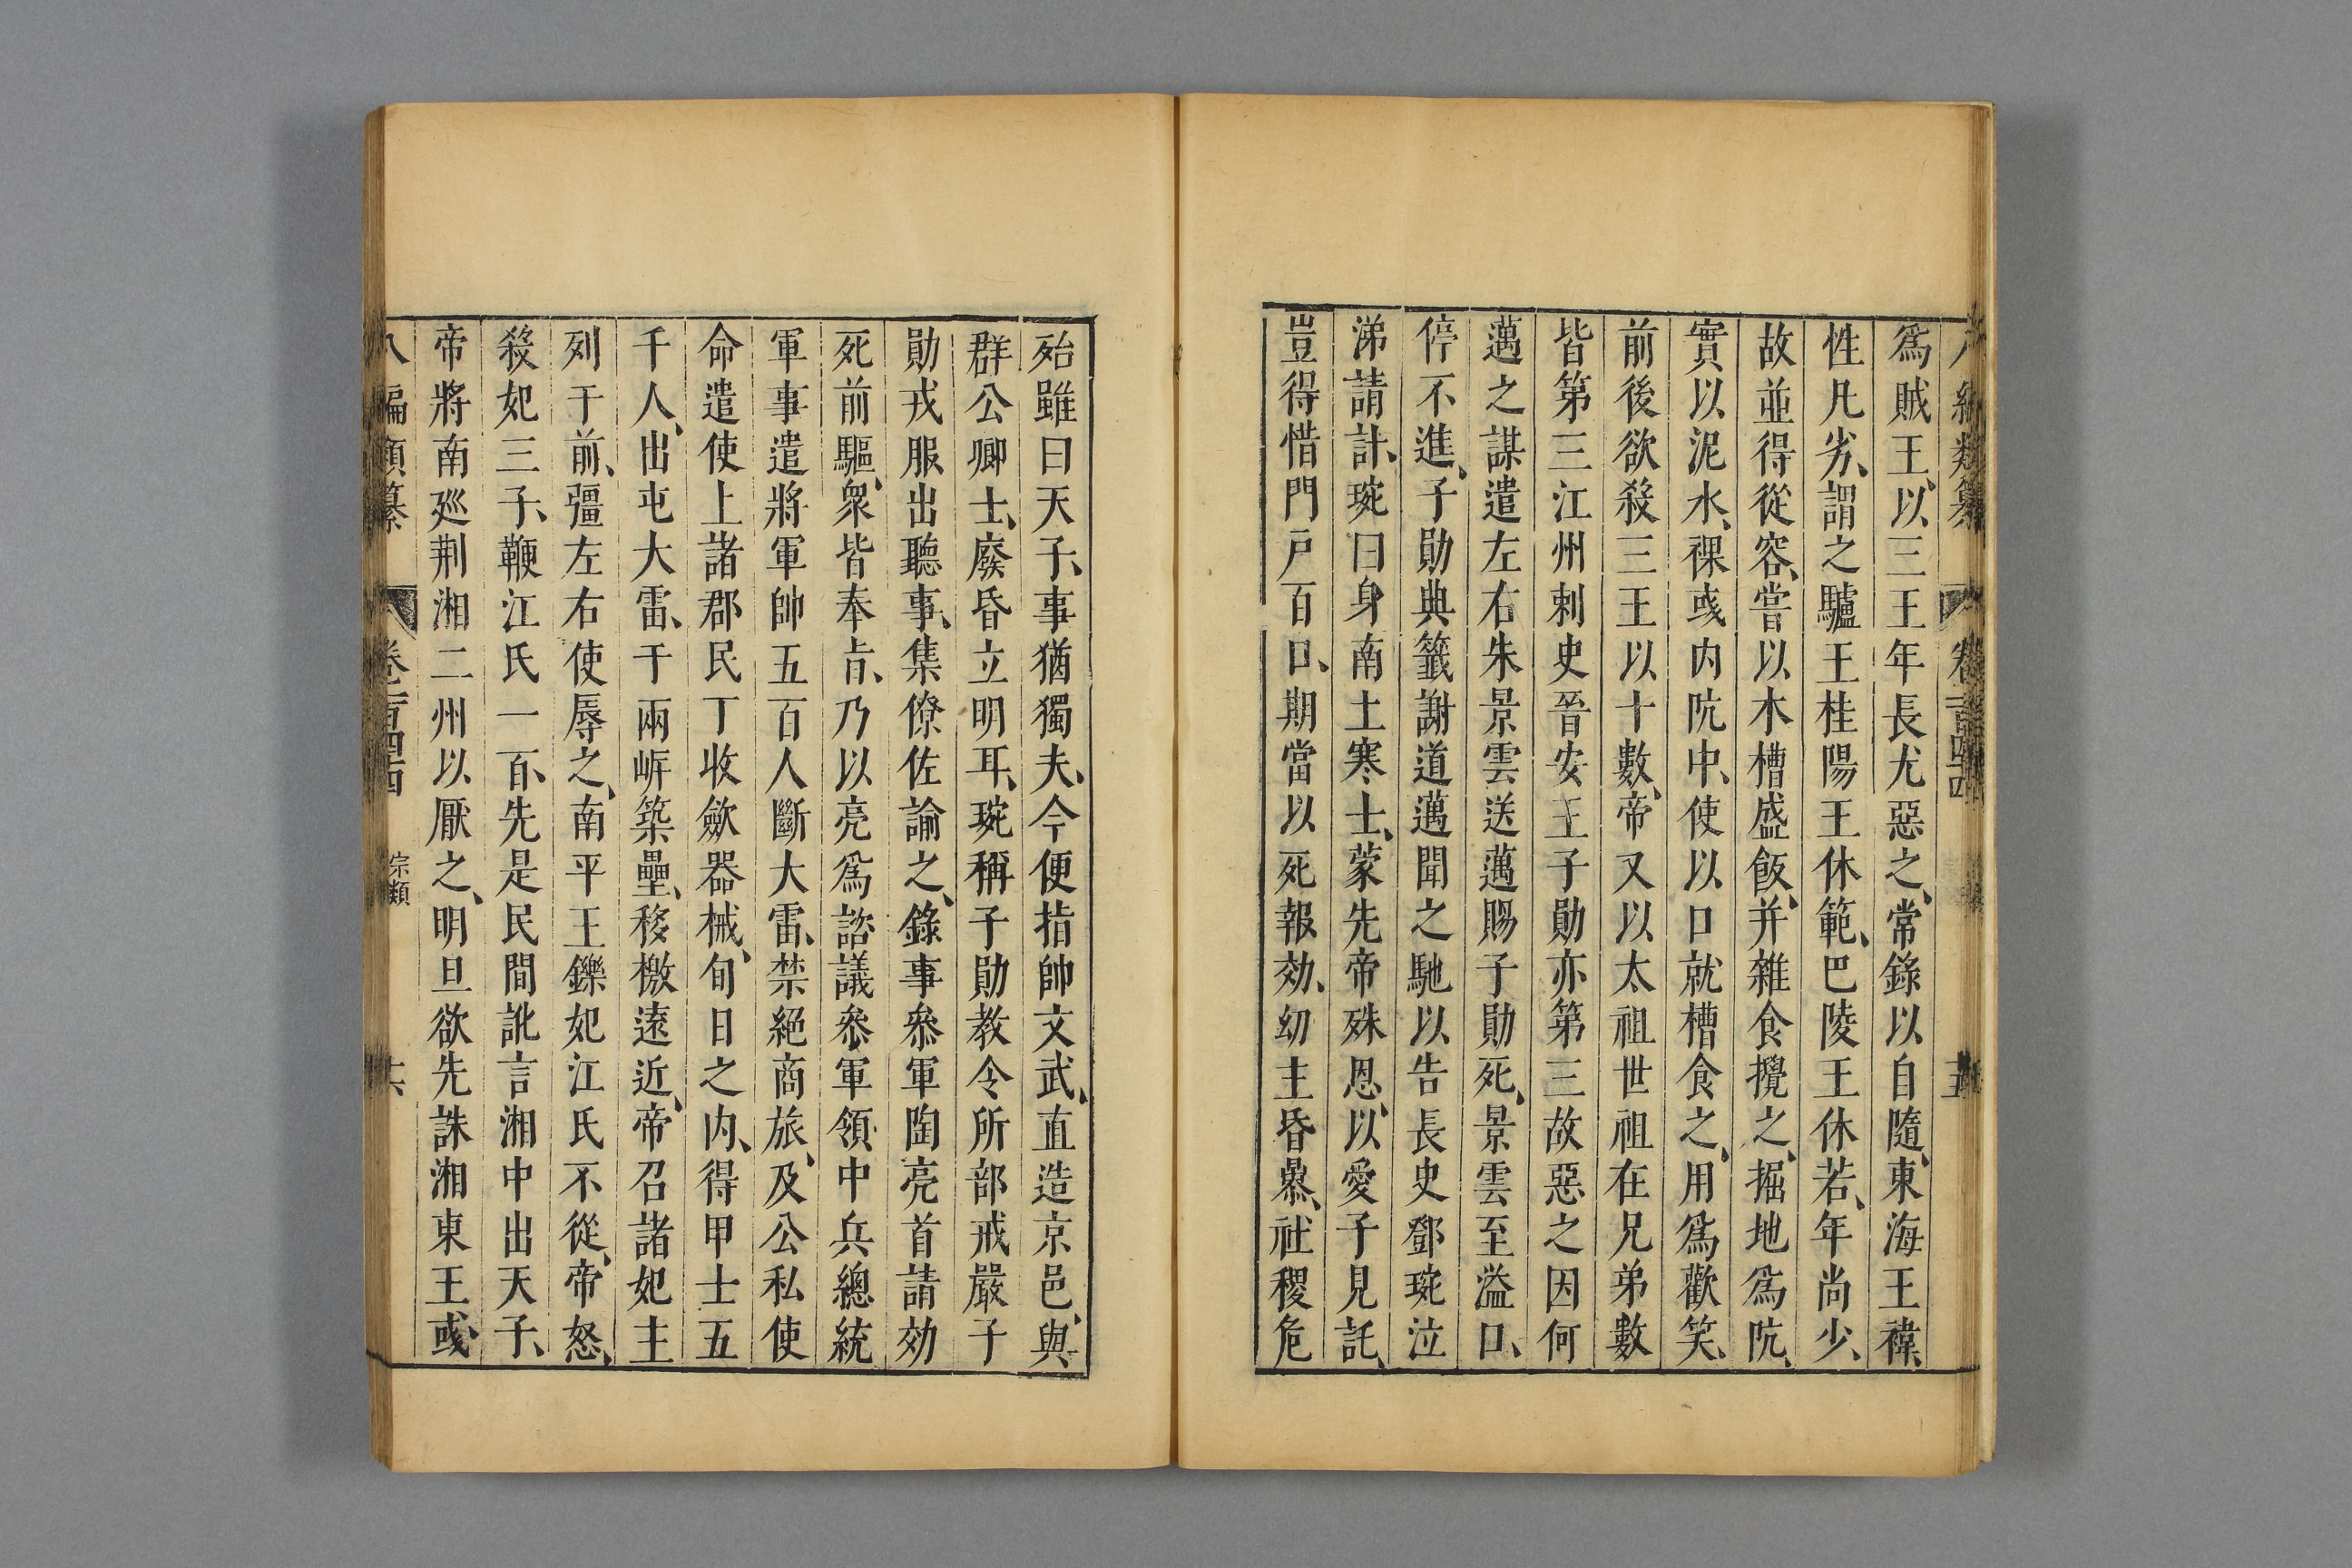 八編類纂 卷一百四十四 十五
爲賊王、以三王年長尤惡之、常錄以自隨、東海王褘、
性凡劣、謂之驢王桂陽王休範、巴陵王休若、年尚少、
故並得從容、嘗以木槽盛飯、并雜食攪之、掘地爲阬、
實以泥水、裸彧内阬中、使以口就槽食之、用爲歡笑、
前後欲殺三王以十數、帝又以太祖世祖在兄弟數
皆第三江州刺史晉安王子勛亦第三故惡之因何
邁之謀遣左右朱景雲送邁賜子勛死、景雲至湓口、
停不進、子勛典籤謝道邁聞之馳以告長史鄧琬泣
涕請計、琬曰身南土寒士、蒙先帝殊恩、以愛子見託、
豈得惜門戸百口、期當以死報効、幼主昏暴、社稷危
殆雖曰天子、事猶獨夫、今便指帥文武、直造京邑、與
群公卿士、廢昏立明耳、琬稱子勛教令所部戒嚴子
勛戎服出聽事、集僚佐諭之、錄事叅軍陶亮首請効
死前驅、衆皆奉旨、乃以亮爲諮議叅軍領中兵總統
軍事遣將軍帥五百人斷大雷、禁絕商旅、及公私使
命遣使上諸郡民丁收歛器械、旬日之内、得甲士五
千人、出屯大雷、于兩㟁築壘、移檄遠近、帝召諸妃主
列于前、彊左右使辱之、南平王鑠妃江氏不從、帝怒、
殺妃三子、鞭江氏一百、先是民間訛言湘中出天子、
帝將南廵荆湘二州以厭之、明旦欲先誅湘東王彧、
八編類纂 卷一百四十四 宗類 十六